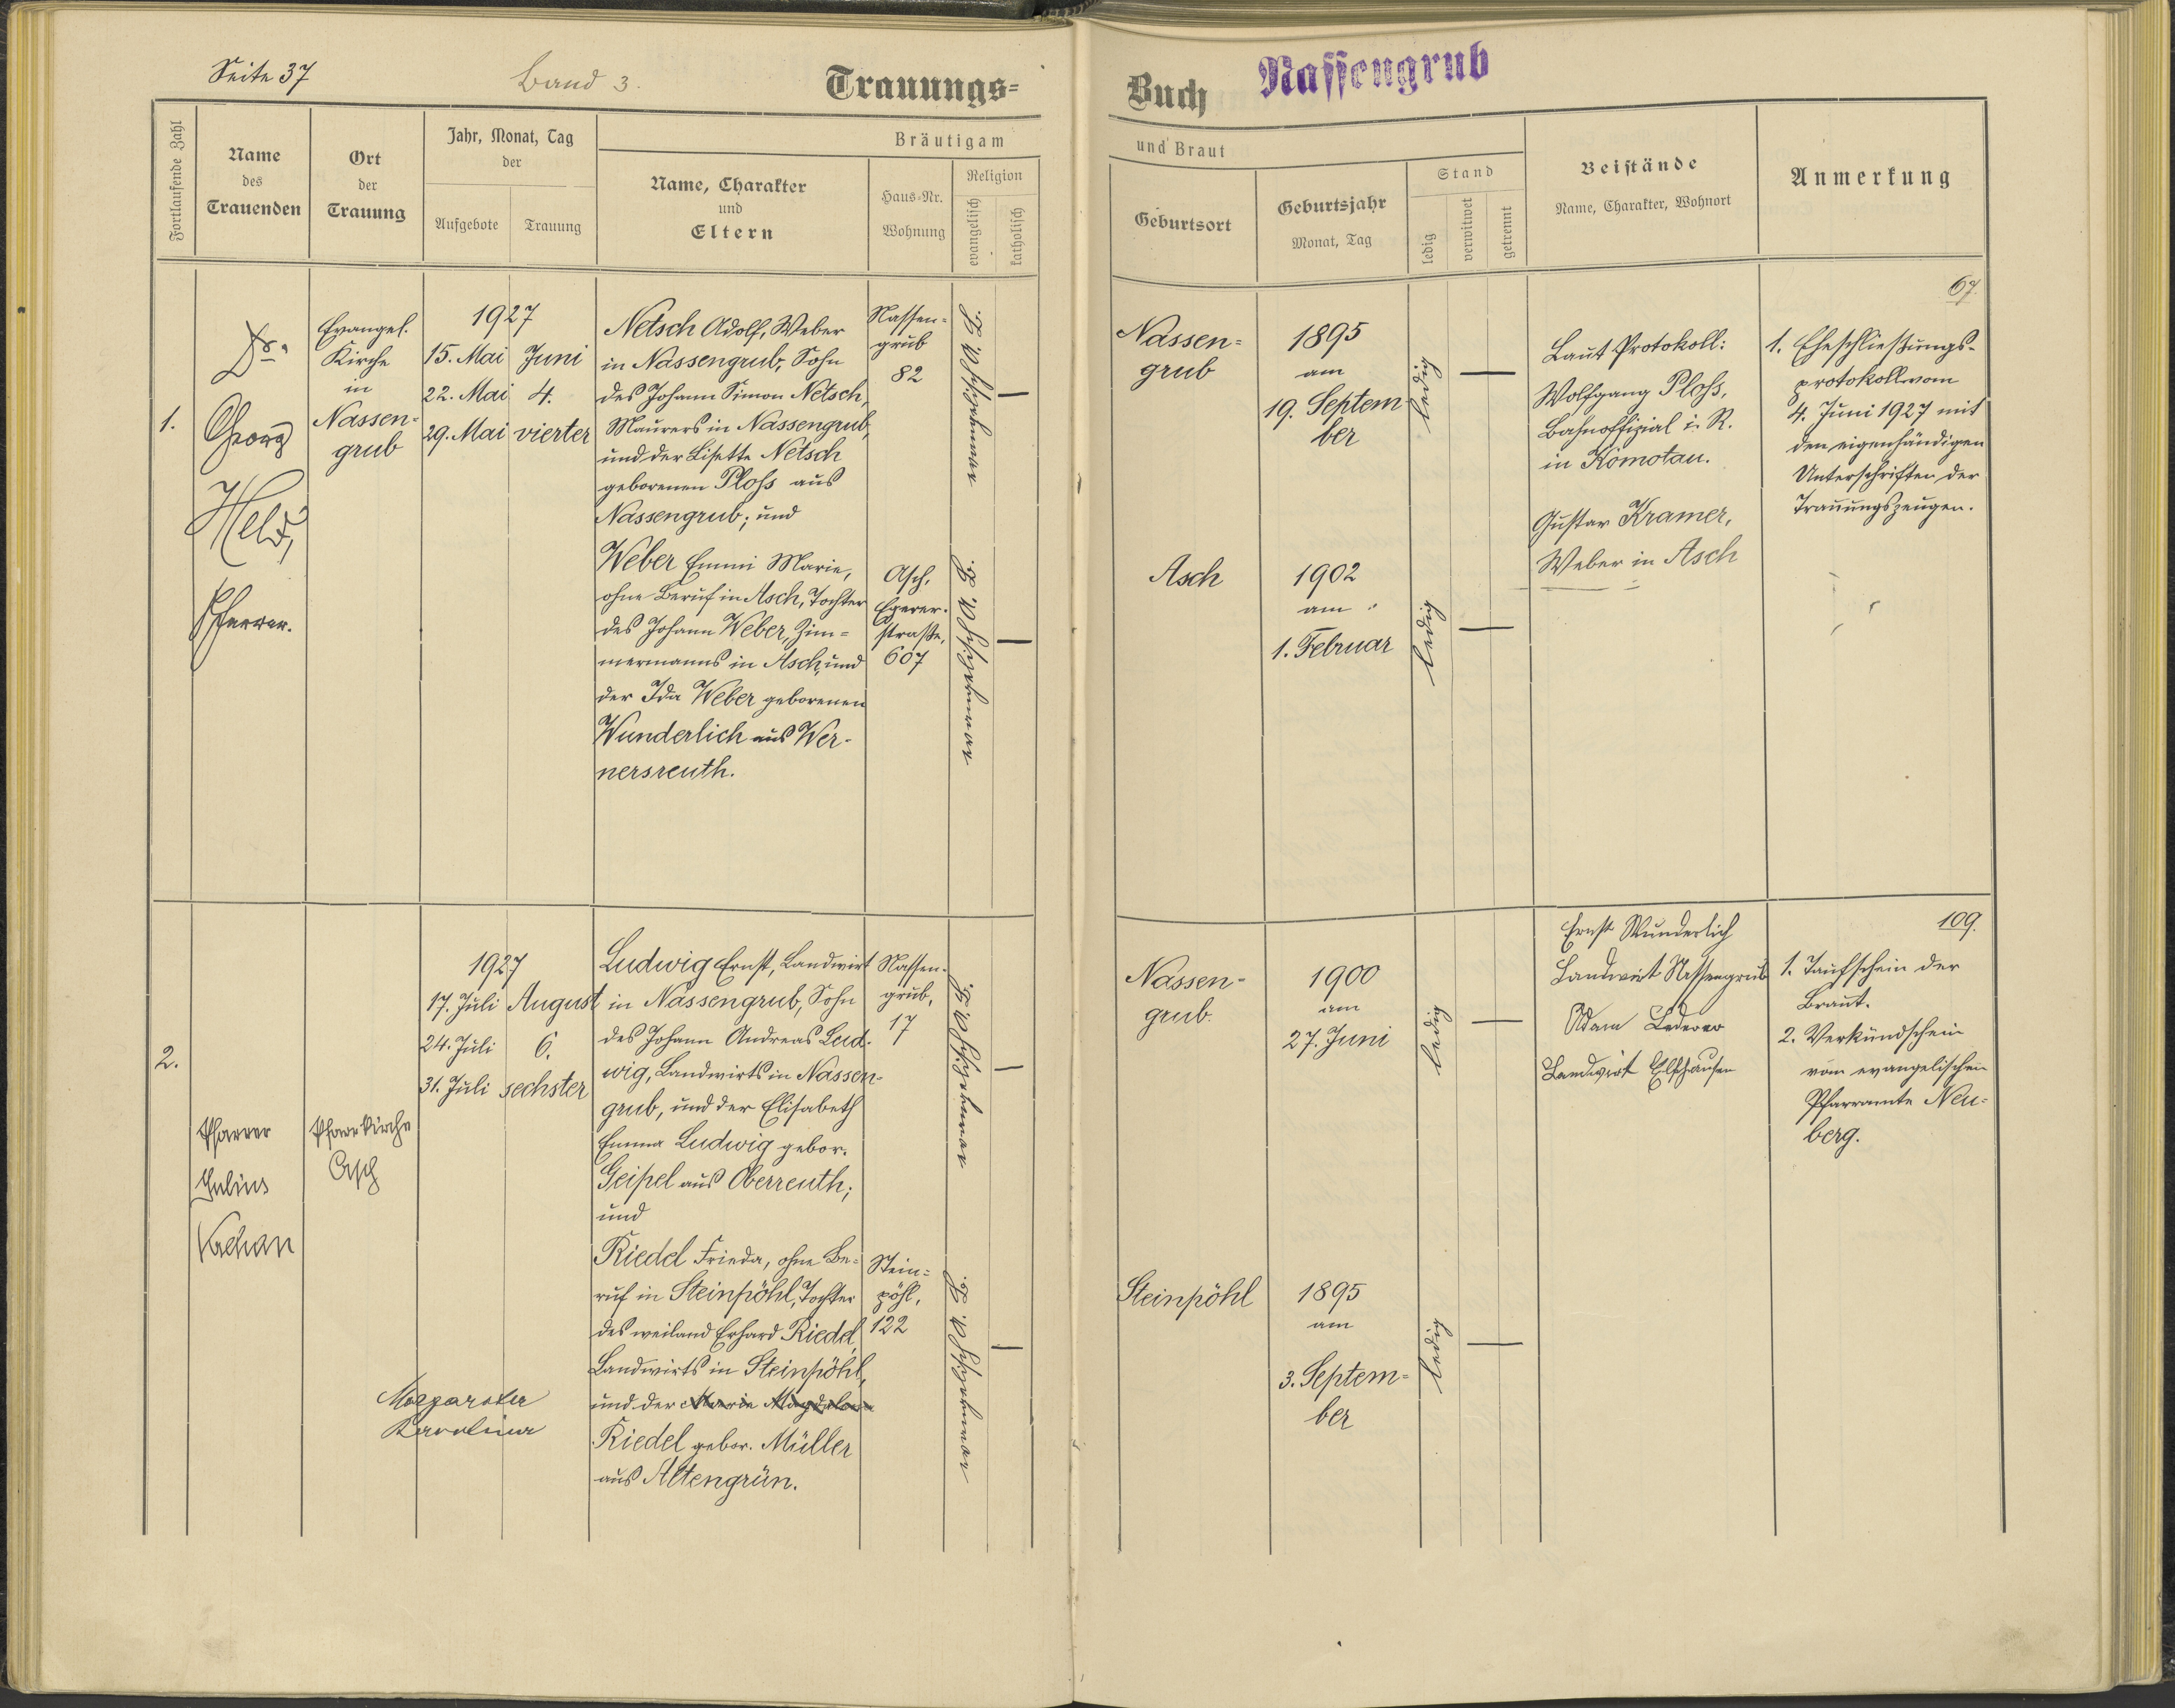 Seite 37
Band 3.
Trauungs=
Buch
Nassengrub
Fortlaufende Zahl
Name
des
Trauenden
Ort
der
Trauung
Jahr, Monat, Tag
der
Aufgebote
Trauung
Bräutigam
Name, Charakter
und
Eltern
Haus=Nr.
Wohnung
Religion
evangelisch
katholisch
und Braut
Geburtsort
Geburtsjahr
Monat, Tag
Stand
ledig
verwitwet
getrennt
Beistände
Name, Charakter, Wohnort
Anmerkung
1.
Dr.
Georg
Held,
Pfarrer.
Evangel.
Kirche
in
Nassen=
grub
1927
15. Mai
22. Mai
29. Mai
Juni
4.
vierter
Netsch Adolf, Weber
in Nassengrub, Sohn
des Johann Simon Netsch,
Maurers in Nassengrub,
und der Lisette Netsch
geborenen Ploss aus
Nassengrub; und
Weber Emmi Marie,
ohne Beruf in Asch, Tochter
des Johann Weber, Zim=
mermanns in Asch, und
der Ida Weber geborenen
Wunderlich aus Wer-
nersreuth.
Nassen=
grub
82
Asch,
Egerer-
straße,
607
Nassen=
grub
1895
am
19. Septem
ber
ledig
Asch
1902
am
1. Februar
ledig
Laut Protokoll:
Wolfgang Ploss,
Bahnoffizial i. R.
in Komotau.
Gustav Kramer,
Weber in Asch
67.
1. Eheschließungs-
protokoll vom
4. Juni 1927 mit
den eigenhändigen
Unterschriften der
Trauungszeugen.
2.
Pfarrer
Julius
Pfarrkirche
Asch
1927
17. Juli
24. Juli
31. Juli
August
6.
sechster
Ludwig Ernst, Landwirt
in Nassengrub, Sohn
des Johann Andreas Lud-
wig, Landwirts in Nassen=
grub, und der Elisabeth
Emma Ludwig gebor.
Geipel aus Oberreuth;
und
Riedel Frieda, ohne Be=
ruf in Steinpöhl, Tochter
des weiland Erhard Riedel,
Landwirts in Steinpöhl,
und der Marie Magdalena
Riedel gebor. Müller
aus Altengrün.
Margareta
Karolina
Nassen-
grub,
17
Stein=
pöhl,
122
Nassen-
grub.
1900
am
27. Juni
ledig
Steinpöhl
1895
am
3. Septem=
ber
ledig
Ernst Wunderlich
Landwirt Nassengrub
Adam Lederer
Landwirt Elfhausen
109.
1. Taufschein der
Braut.
2. Verkündschein
vom evangelischen
Pfarramte Neu=
berg.